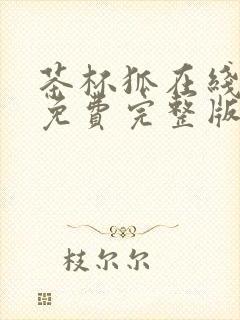 茶杯狐在线
免费完整版
枝尔尔